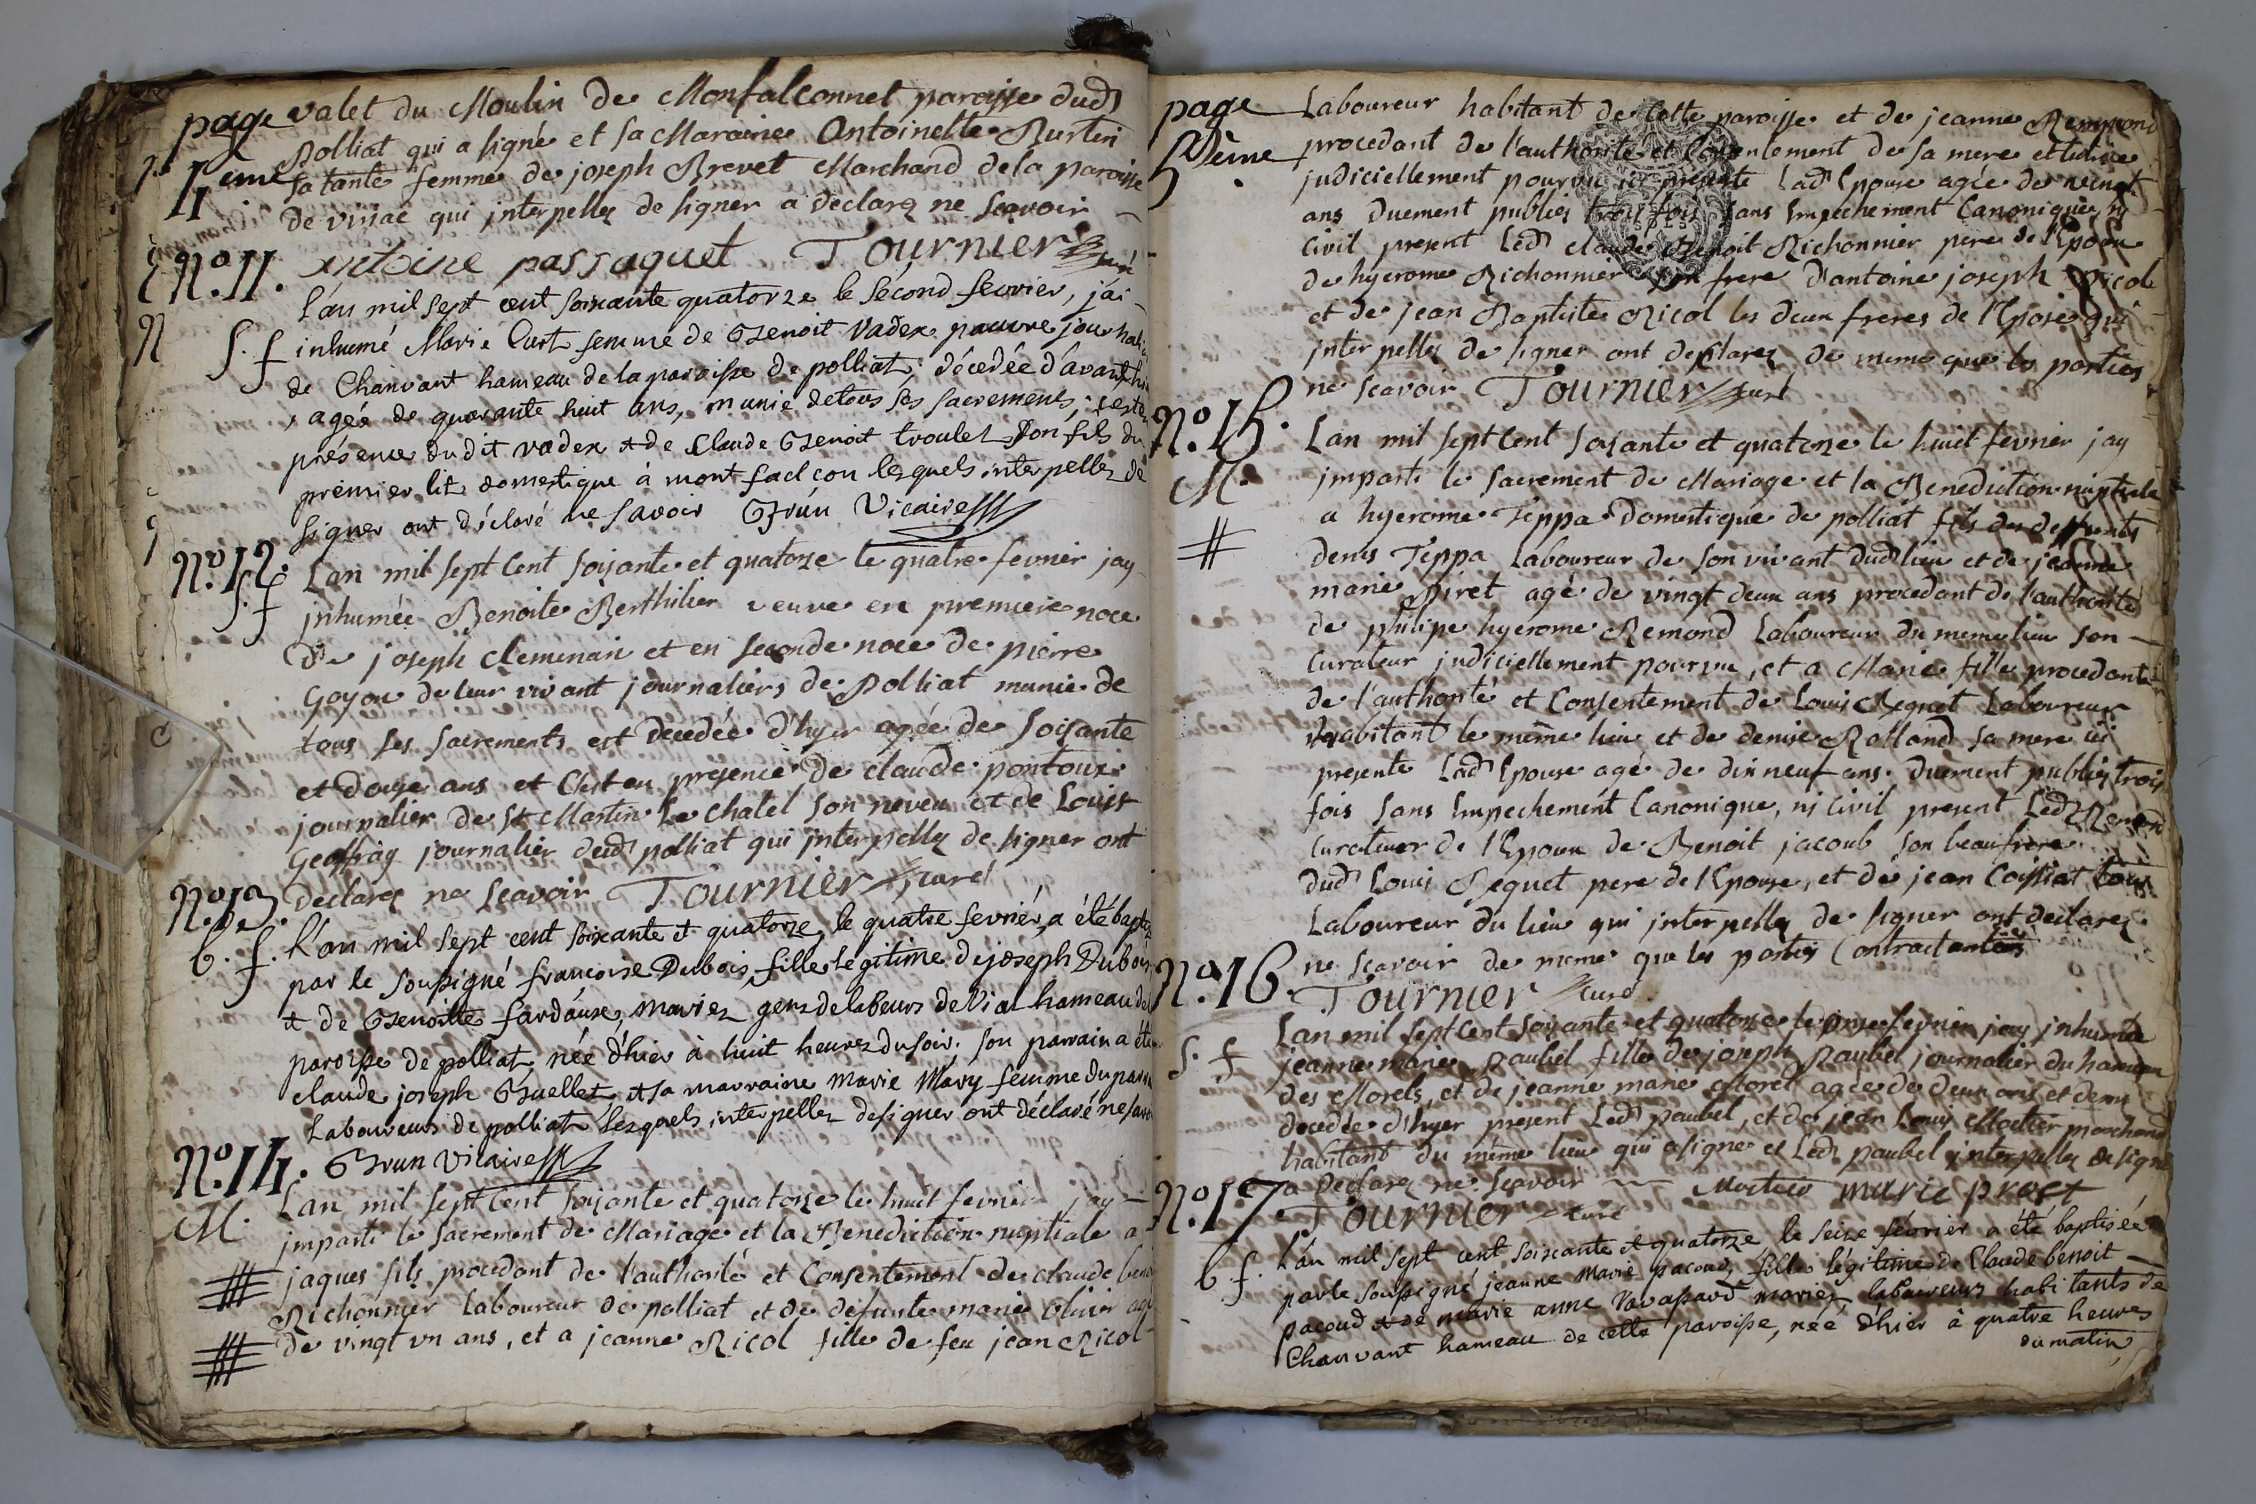 page
4ème
valet du Moulin de Monfalconnet paroisse dud
Polliat qui a signé et sa Maraine Antoinette Burtin
sa tante femme de joseph Brevet Marchand de la paroisse
de viriat qui interpellez de signer a declarez ne scavoir
antoine passaquet Tournier curé
N.º 11.
S. f
L'an mil sept cent soixante quatorze le sécond fevrier, j'ai
inhumé Marie Curt femme de Benoit Vadex pauvre jour
de Chanvant hameau de la paroisse de polliat, décedée d'avant hier
agée de quarante huit ans, munie de tous ses sacrements;
présence dudit vadex et de Claude Benoit troulet son fils du
prémier lit domestique à mont falcon lesquels interpellez de
signer ont déclaré ne savoir Brun Vicaire
N.º 12.
S. f
Lan mil sept Cent soixante et quatorze le quatre fevrier jay
inhumée Benoite Berthilier veuve en premiere noce
de joseph Clemenain et en seconde noce de pierre
Goyon de leur vivant journaliers de Polliat munie de
tous ses sacrements est decedée d'hyer agée de soixante
et douze ans et C'est en presence de claude pontoux
journalier de St Martin Le Chatel son neveu et de Louis
Geoffray journalier dud polliat qui interpellez de signer ont
declarez ne scavoir Tournier curé
N.º 13.
b. f.
L'an mil sept cent soixante et quatorze, le quatre fevrier, a été
par le soussigné françoise Dubois, fille légitime de joseph Dubois
et de Benoitte fardoux, mariez gens de labeurs de Vial hameau de
paroisse de polliat née d'hier à huit heures du soir. son parrain a été
claude joseph Buellet et sa marraine Marie Mary femme du
Laboureurs de polliat lesquels interpellez de signer ont déclaré ne
Brun Vicaire
N.º 14.
M.
Lan mil sept Cent soixante et quatorze le huit fevrier jay
imparti le sacrement de Mariage et la Benediction nuptiale a
jaques fils procedant de l'authorité et Consentement de claude
Richonnier Laboureur de polliat et de defunte marie Olivier
de vingt un ans, et a jeanne Nicol fille de feu jean Nicol
page
5ème
Laboureur habitant de Cette paroisse et de jeanne
procedant de l'authorité et Consentement de sa mere et tutrice
judiciellement pourvu ici presente Lad Epouse agée de
ans duement publiez trois fois sans Empechement Canonique ny
Civil present Led claude Benoit Richonnier pere de l'Epoux
de hyerome Richonnier son frere d'antoine joseph Nicol
et de jean Baptiste Nicol les deux freres de l'Epouse qui
interpellez de signer ont declarez de meme que les parties
ne scavoir Tournier curé
N.º 15.
M.
Lan mil sept Cent soixante et quatorze le huit fevrier jay
imparti le sacrement de Mariage et la Benediction nuptiale
a hyerome Teppa Domestique de polliat fils de deffunts
denis Teppa Laboureur de son vivant dud lieu et de jeanne
marie Piret agé de vingt deux ans procedant de l'authorité
de philipe hyerome Remond Laboureur du meme lieu son
Curateur judiciellement pourvu, et a Marie fille procedante
de l'authorité et Consentement de Louis Requet Laboureur
habitant le même lieu et de denise Rolland sa mere ici
presente Lad Epouse agé de dix neuf ans duement publiez trois
fois sans Empechement Canonique, ni Civil present Led Remond
Curateur de l'Epoux de Benoit jacoub son beaufrere
dud Louis Requet pere de l'Epouse, et de jean Coissiat tous
Laboureur du lieu qui interpellez de signer ont declarez
ne scavoir de meme que les parties Contractantes
Tournier curé
N.º 16.
S. f
Lan mil sept Cent soixante et quatorze le onze fevrier jay inhumée
jeanne marie paubel fille de joseph paubel journalier du hameau
des Morels, et de jeanne marie Morel agée de deux ans et demi
decedée d'hyer present Led paubel, et de jean Louis Moitier marchand
habitant du même lieu qui a signé et Led paubel interpellez de signer
a declarez ne scavoir
Tournier curé
N.º 17.
b. f.
L'an mil sept cent soixante et quatorze le seize fevrier a été baptisée
par le soussigné jeanne Marie pacoud, fille légitime de Claude benoit
pacoud et de marie anne Vavassard mariez laboureurs habitants de
Chanvant hameau de cette paroisse, née d'hier à quatre heures
du matin,